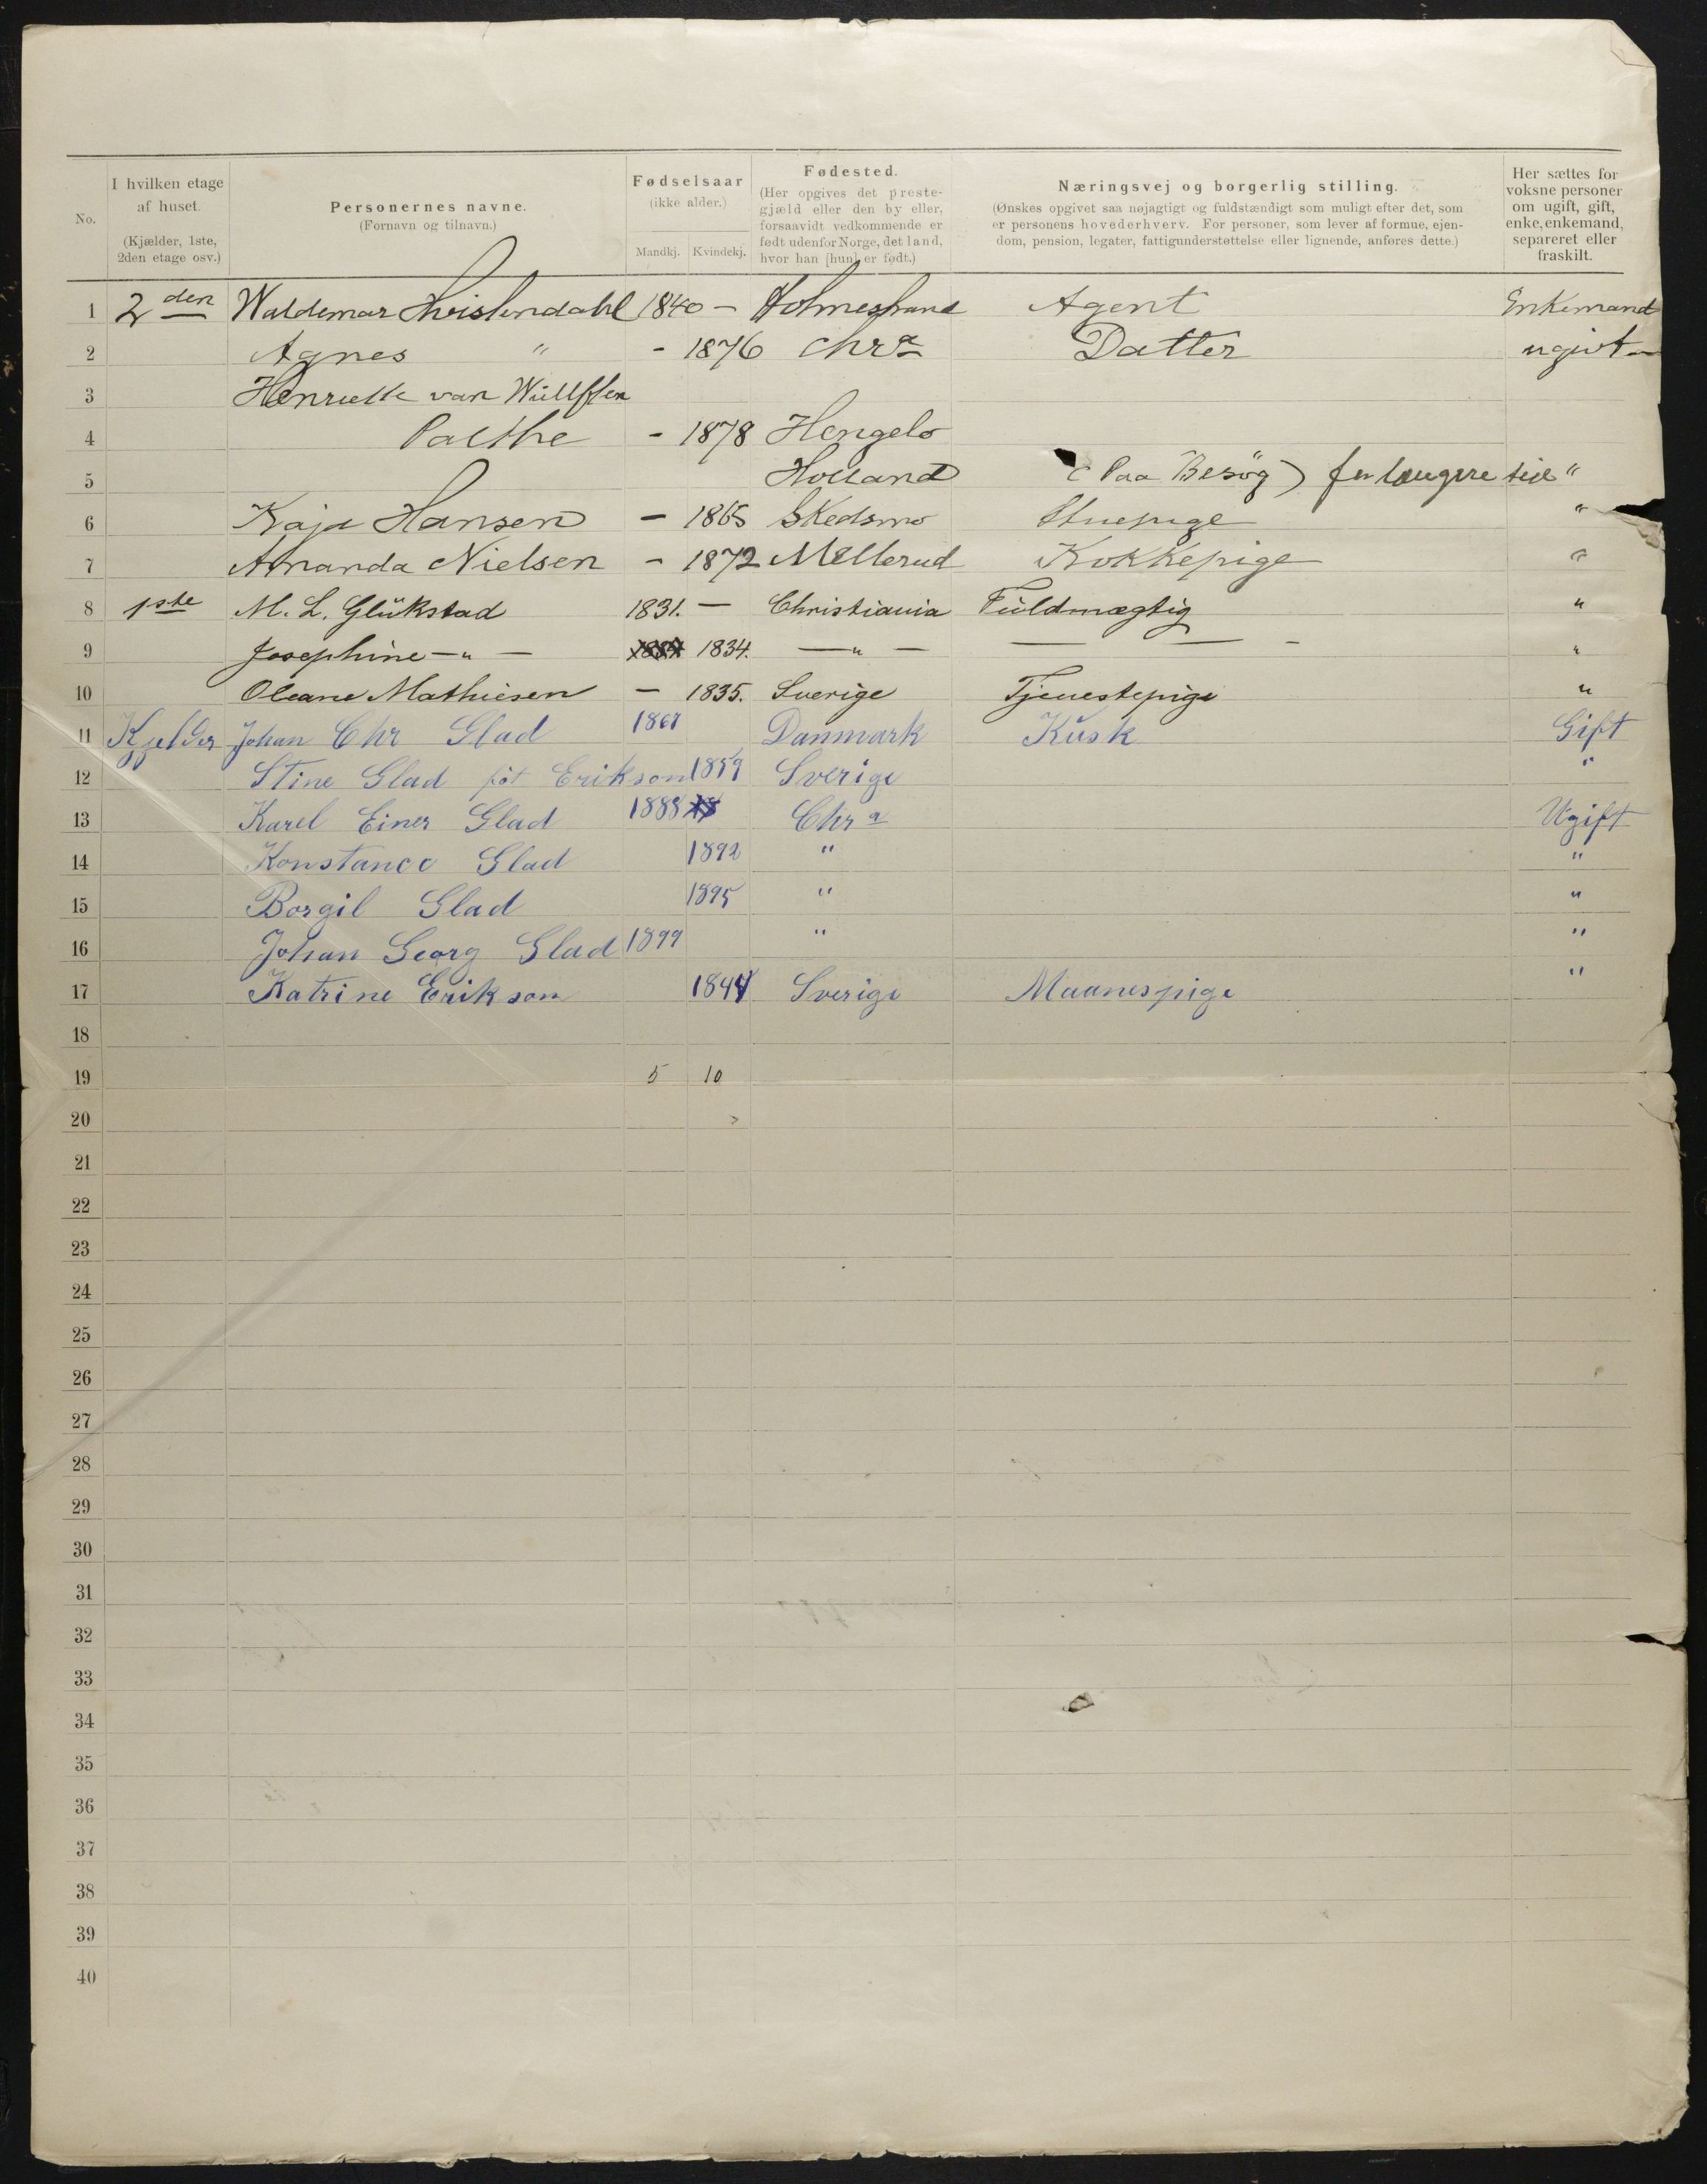 No.
I hvilken etage af huset. (Kjælder, 1ste, 2den etage osv.)
Personernes navne. (Fornavn og tilnavn.)
Fødselsaar (ikke alder.)
Mandkj. Kvindekj.
Fødested. (Her opgives det prestegjæld eller den by eller, forsaavidt vedkommende er født udenfor Norge, det land, hvor han [hun] er født.)
Næringsvej og borgerlig stilling. (Ønskes opgivet saa nøjagtigt og fuldstændigt som muligt efter det, som er personens hovederhverv. For personer, som lever af formue, ejendom, pension, legater, fattigunderstøttelse eller lignende, anføres dette.)
Her sættes for voksne personer om ugift, gift, enke, enkemand, separeret eller fraskilt.
1 2den Waldemar 1840 – Holmestrand Agent Enkemand
2 Agnes " - 1876 Chra Datter ugivt –
3 Henriette van Wüllften
4 Palthe - 1878 Hengelo
5 Holland (Paa Besög) for længere tid "
6 Kaja Hansen – 1865 Skedsmo Stuepige "
7 Amanda Nielsen – 1872 Mellerud Kokkepige "
8 1ste M. L. Glükstad 1831. – Christiania Fuldmægtig "
9 Josephine –"– 1834. –"– — — - "
10 Oleane Mathiesen – 1835. Sverige Tjenestepige "
11 Kjelder Johan Chr Glad 1867 Danmark Kusk Gift
12 Stine Glad föt Erikson 1859 Sverige "
13 Karel Einer Glad 1888 Chra Ugift
14 Konstance Glad 1892 " "
15 Borgil Glad 1895 " "
16 Johan Georg Glad 1899 " "
17 Katrine Erikson 1844 Sverige Maanespige "
18
19 5 10
20
21
22
23
24
25
26
27
28
29
30
31
32
33
34
35
36
37
38
39
40